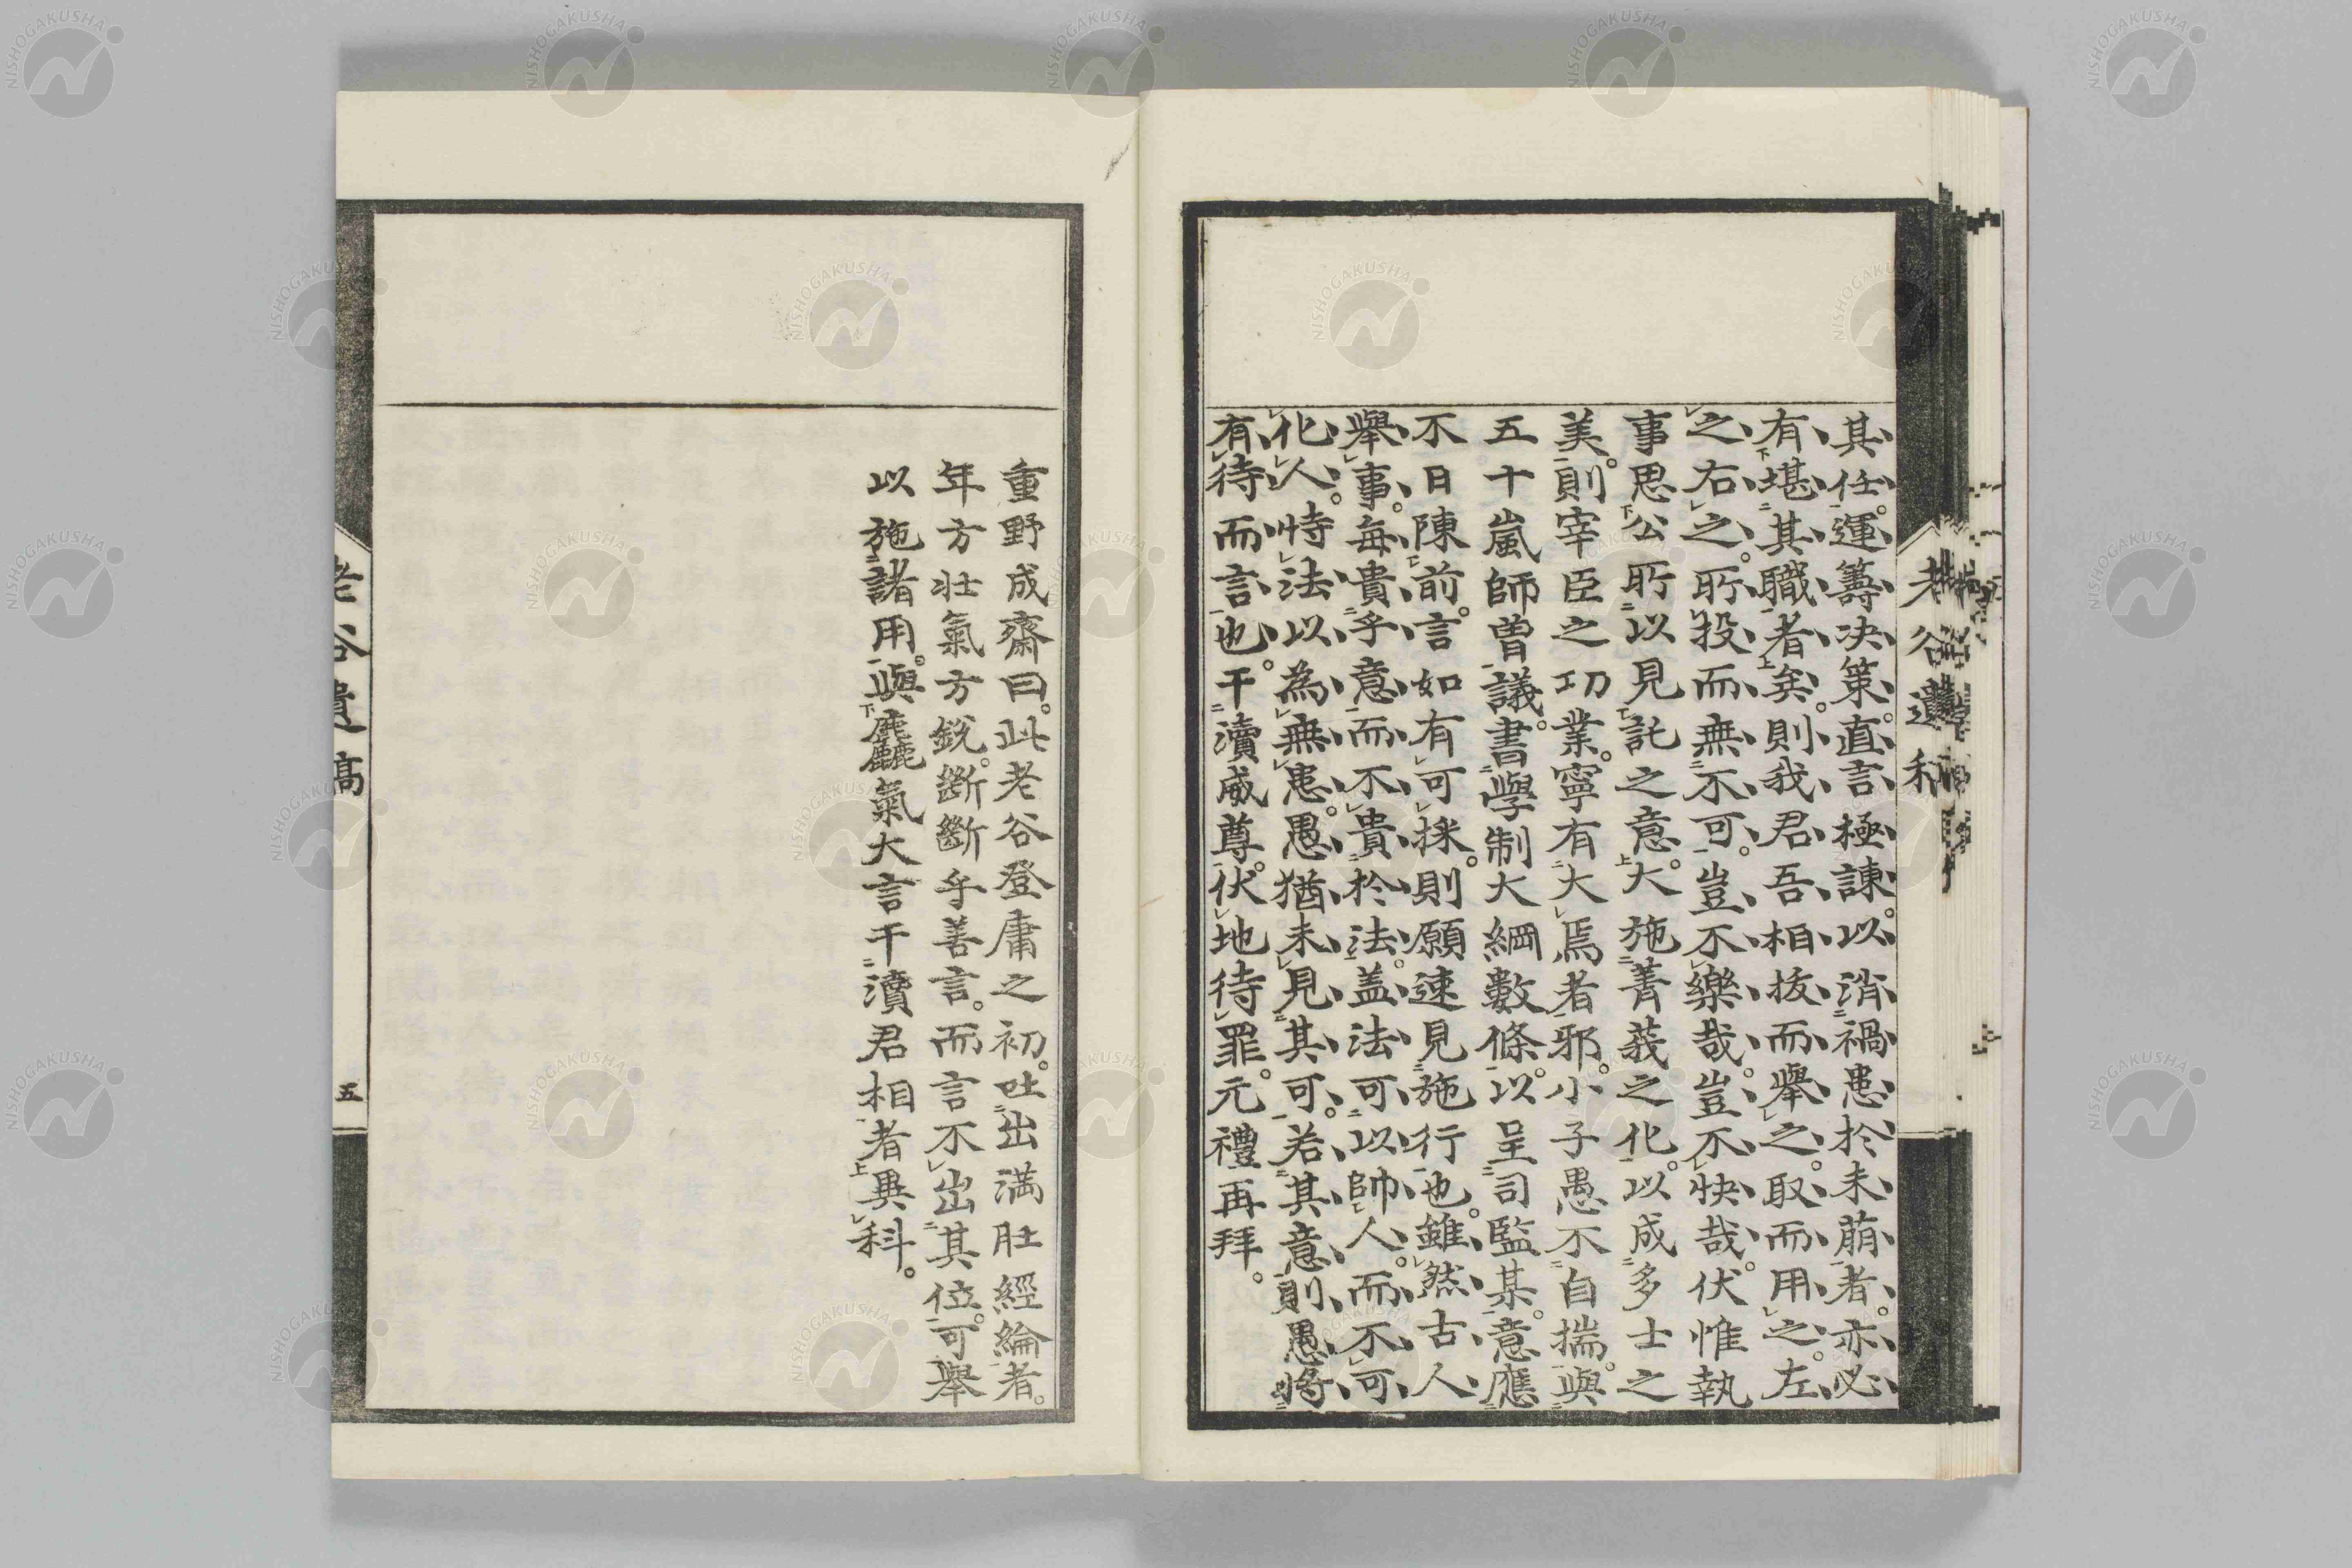 其任。運籌决策。直言極諫。以消禍患於未萠者。亦必
有堪其職者矣。則我君吾相抜而舉之。取而用之。左
之右之。所投而無不可。豈不樂哉。豈不快哉。伏惟執
事思公所以見託之意。大施菁莪之化。以成多士之
美。則宰臣之功業。寧有大焉者邪。小子愚不自揣。與
五十嵐師曽議。書學制大綱數條。以呈司監某。意應
不日陳前。言如有可採。則願速見施行也。雖然古人
舉事。每貴乎意而不貴於法。盖法可以帥人。而不可
化人。恃法以為無患。愚猶未見其可。若其意則愚將
有待而言也。干瀆威尊。伏地待罪。元禮再拜。
重野成齋曰。此老谷登庸之初。吐出満肚經綸者。
年方壮氣方銳。斷斷乎善言。而言不出其位。可舉
以施諸用。與麤氣大言干瀆君相者異科。
老谷遺稿
五
NISHOGAKUSHA